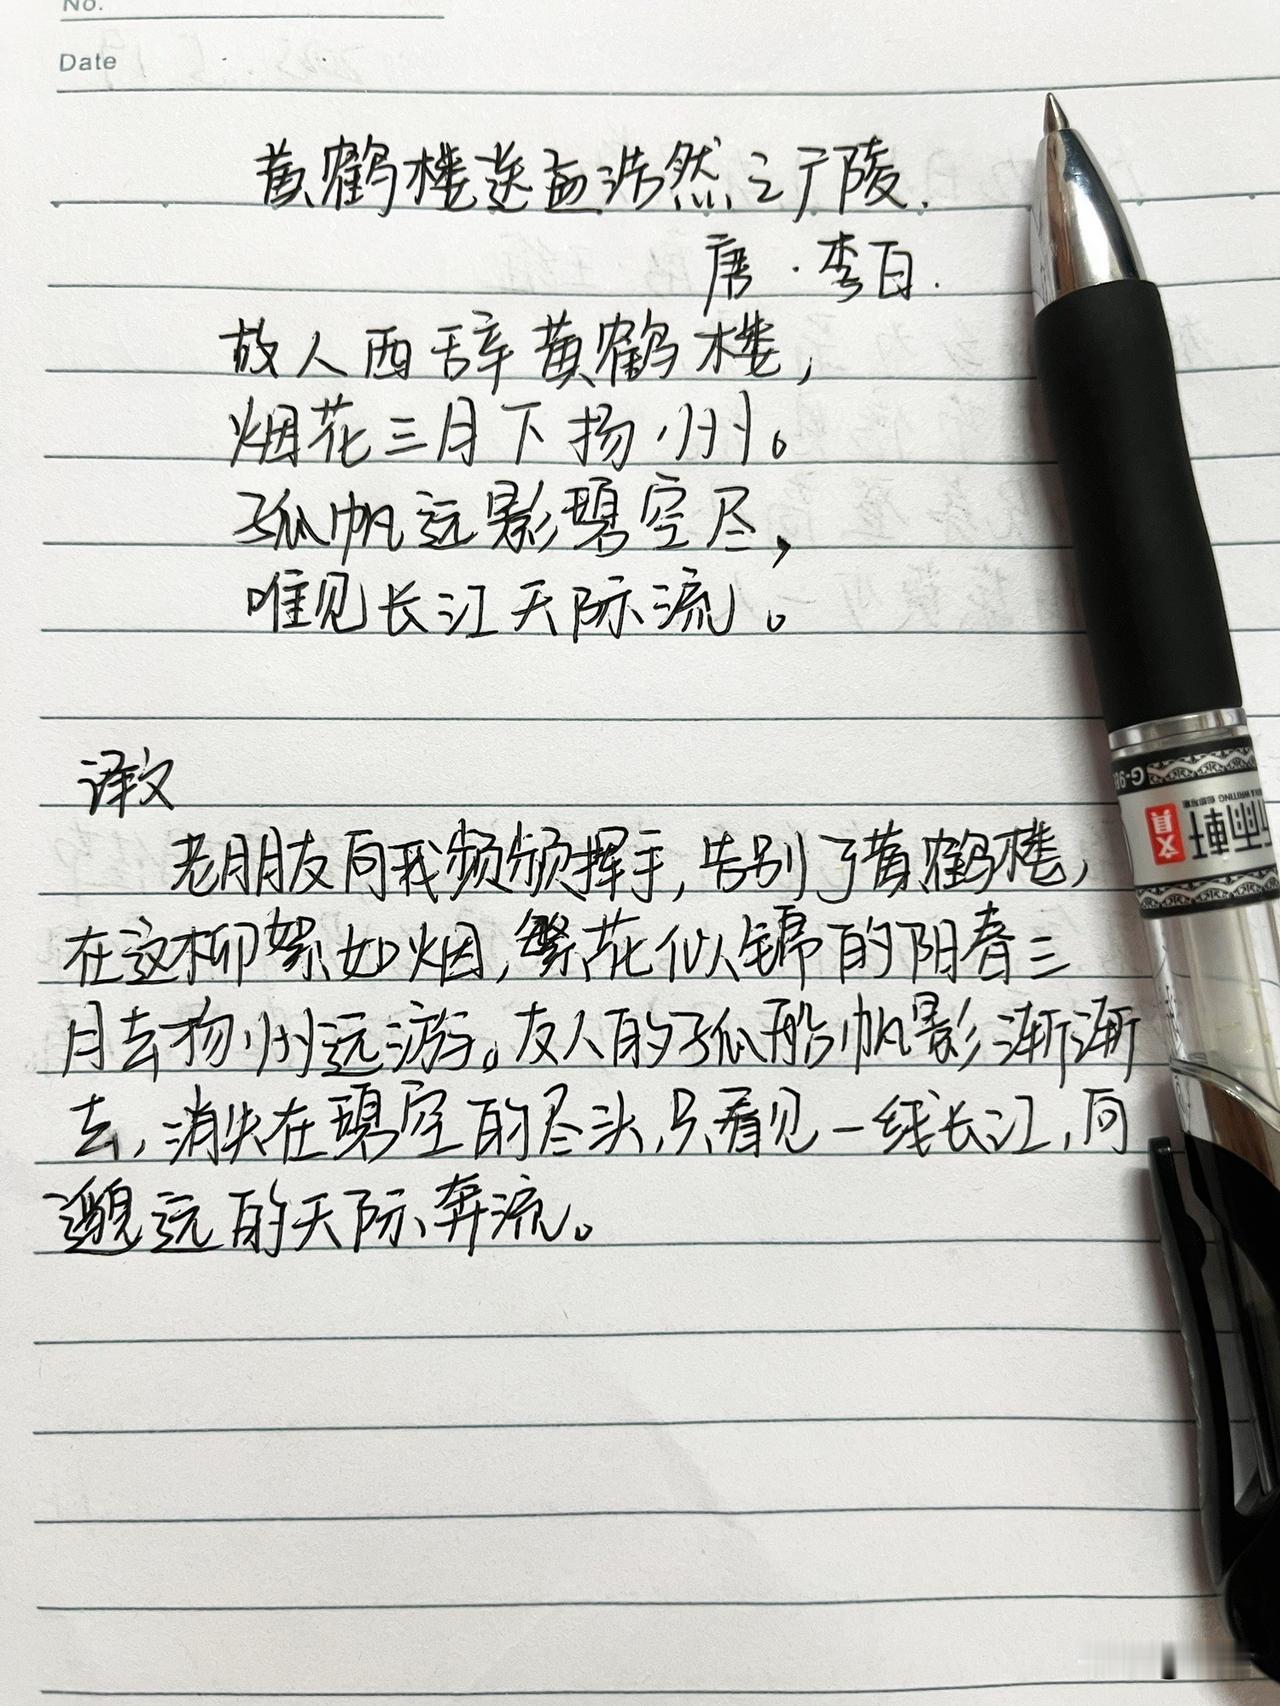 No.
Date
黄鹤楼送孟浩然之广陵.
唐·李白.
故人西辞黄鹤楼,
烟花三月下扬州。
孤帆远影碧空尽,
唯见长江天际流。
译文
老朋友向我频频挥手,告别了黄鹤楼,
在这柳絮如烟,繁花似锦的阳春三
月去扬州远游。友人的孤船帆影渐渐
去,消失在碧空的尽头,只看见一线长江,向
邈远的天际奔流。
文具